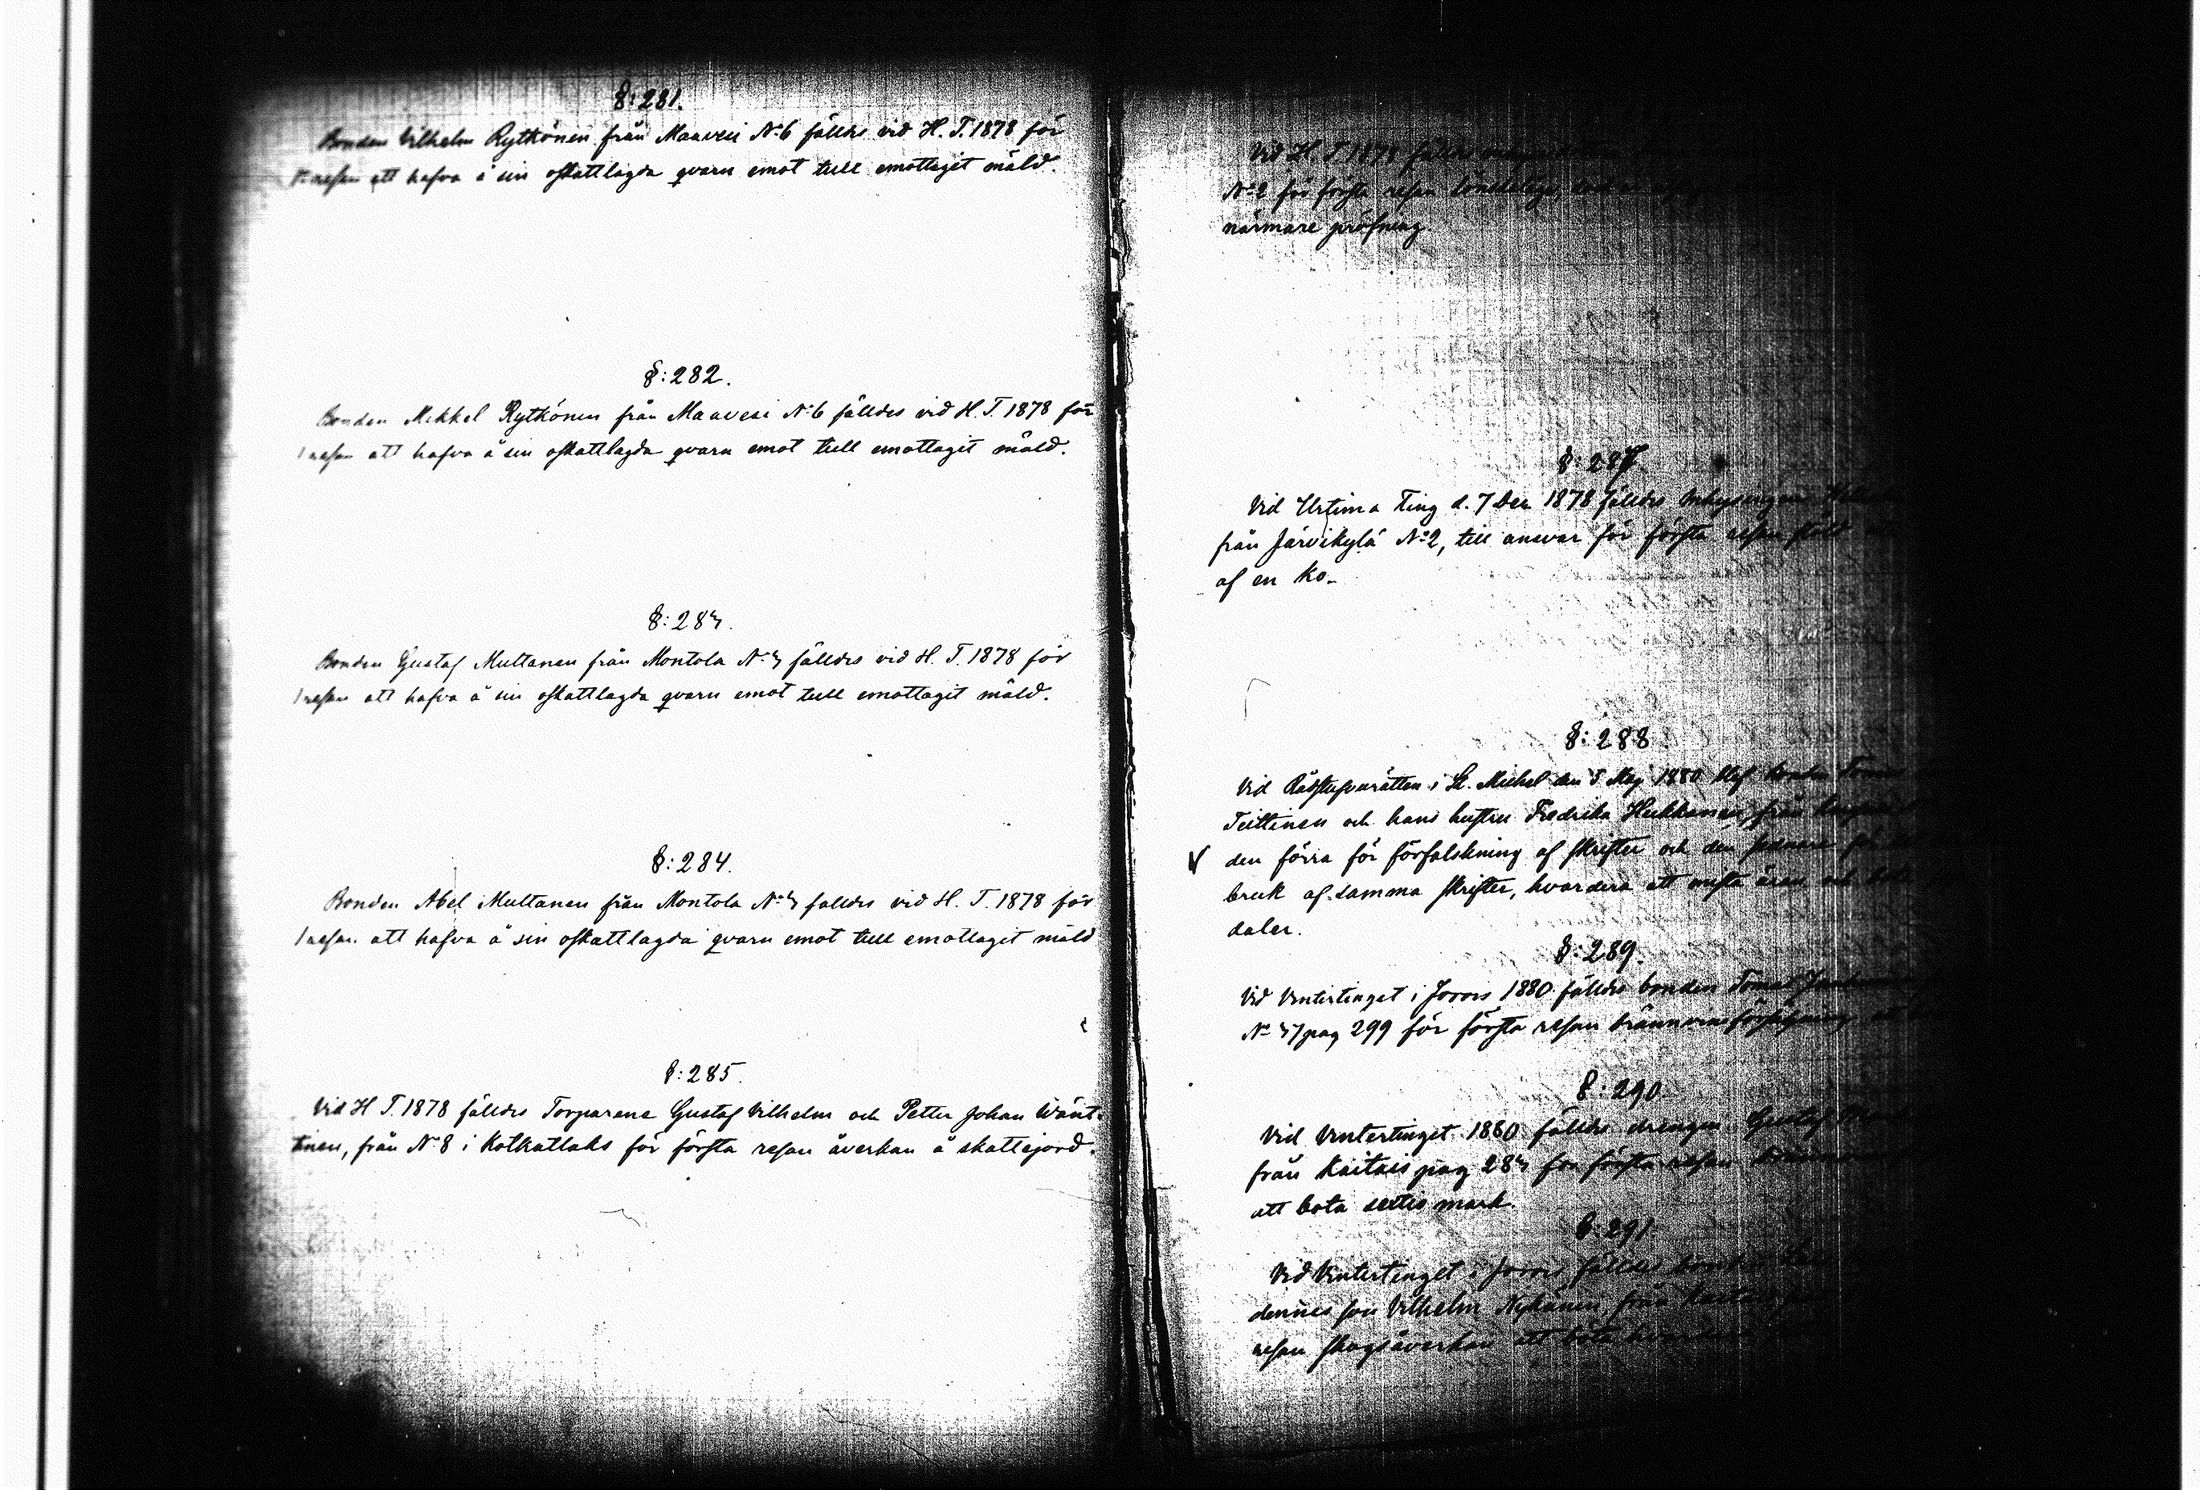 §: 281.
Bonden Vilhelm Rytkönen från Maavesi No 6 fälldes vid H. T. 1878 för
resan att hafva å sin oskattlagda qvarn emot tull emottagit mäld.
§: 282.
Bonden Mikkel Rytkönen från Maavesi No 6 fälldes vid H. T. 1878 för
1 resan att hafva å sin oskattlagda qvarn emot tull emottagit mäld.
§: 283.
Bonden Gustaf Multanen från Montola No 3 fälldes vid H. T. 1878 för
1 resan att hafva å sin oskattlagda qvarn emot tull emottagit mäld.
§: 284.
Bonden Abel Multanen från Montola No 3 fälldes vid H. T. 1878 för
1 resan att hafva å sin oskattlagda qvarn emot tull emottagit mäld
§: 285.
Vid H T. 1878 fälldes Torparene Gustaf Vilhelm och Petter Johan Wänt-
tinen, från No 8 i Kotkatlaks för första resan åverkan å skattejord.
Vid H. T. 1878
No 2 för första resan
närmare pröfning.
§: 287.
Vid Urtima Ting d. 7 Dec 1878 fälldes Inhysingen
från Järvikylä No 2, till ansvar för första resan stöld
af en ko.
§: 288
Vid Rådstufvurätten i St. Michel den 5 Maj 1880 blef bonden Tomas
Teittinen och hans hustru Fredrika Hukkanen, från
den förra för förfalskning af skrifter och den senare för
bruk af samma skrifter, hvardera att mista äran och
daler.
§: 289.
Vid Vintertinget i Jorois 1880 fälldes bonden Tomas
No 3 / pag 299 för första resan bränvinsförsäljning att
§: 290
Vid Vintertinget 1880 fälldes drengen Gustaf
från Kaitais pag 283 för första resan
att bota sextio mark.
§: 291
Vid Vintertinget i Jorois fälldes bonden
dennes son Vilhelm Nykänen från
resan skogsåverkan att böta